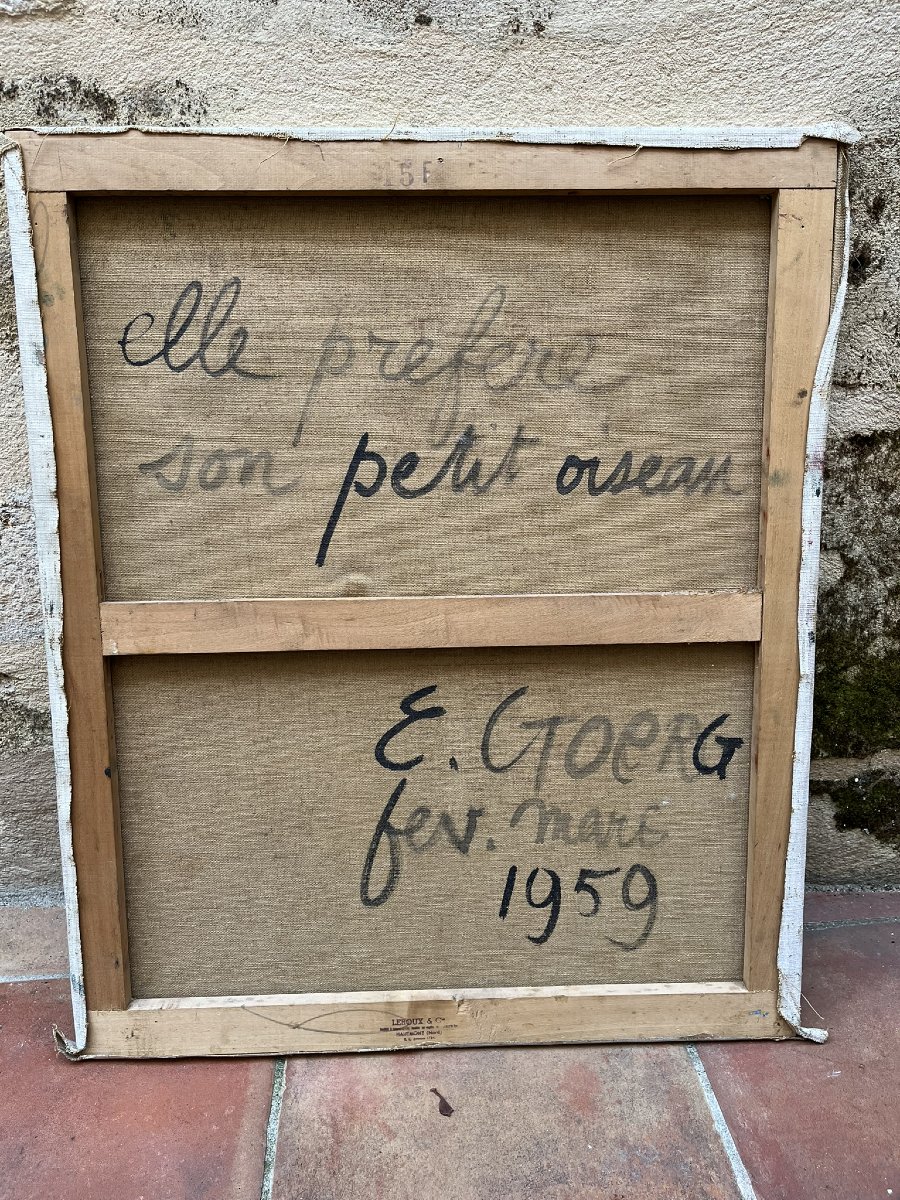 15F
elle préfère
son petit oiseau
E. GOERG
fev. mars
1959
LEROUX & Cie
HAUTMONT (Nord)